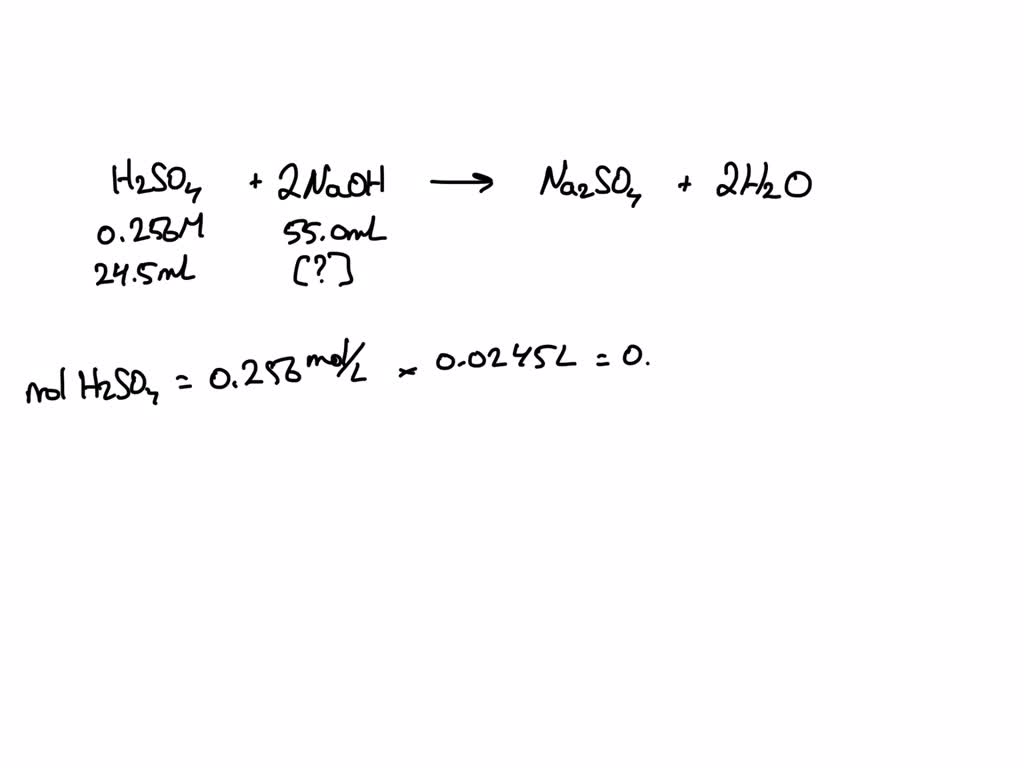 H₂SO₄ + 2NaOH → Na₂SO₄ + 2H₂O
0.256M 55.0mL
24.5mL [?]
mol H₂SO₄ = 0.256 mol/L × 0.0245L = 0.